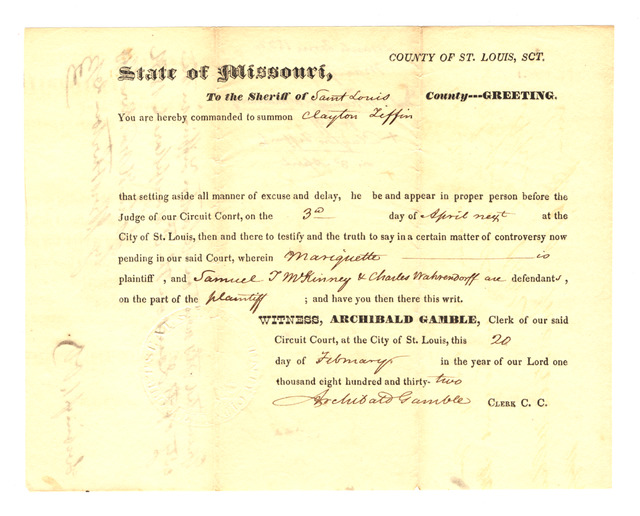 COUNTY OF ST. LOUIS, SCT.
State of Missouri,
To the Sheriff of Saint Louis County---GREETING.
You are hereby commanded to summon Clayton Tiffin
that setting aside all manner of excuse and delay, he be and appear in proper person before the
Judge of our Circuit Court, on the 3d day of April next at the
City of St. Louis, then and there to testify and the truth to say in a certain matter of controversy now
pending in our said Court, wherein Mariquette is
plaintiff , and Samuel T McKinney & Charles Wahrendorff are defendants,
on the part of the plaintiff ; and have you then there this writ.
WITNESS, ARCHIBALD GAMBLE, Clerk of our said
Circuit Court, at the City of St. Louis, this 20
day of February in the year of our Lord one
thousand eight hundred and thirty-two
Archibald Gamble CLERK C. C.